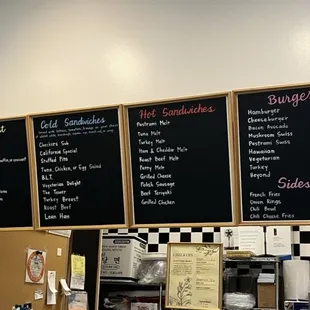 Cold Sandwiches
Checkers Sub
California Special
Stuffed Pita
Tuna, Chicken, or Egg Salad
B.L.T.
Vegetarian Delight
The Tower
Turkey Breast
Roast Beef
Lean Ham
Hot Sandwiches
Pastrami Melt
Tuna Melt
Turkey Melt
Ham & Cheddar Melt
Roast Beef Melt
Patty Melt
Grilled Cheese
Polish Sausage
Barbecue Teriyaki
Grilled Chicken
Burge
Hamburger
Cheeseburger
Bacon Avocado
Mushroom Swiss
Pastrami Swiss
Hawaiian
Vegetarian
Turkey
Beyond
Sides
French Fries
Onion Rings
Chili Bowl
Chili Cheese Fries
CHECKERS